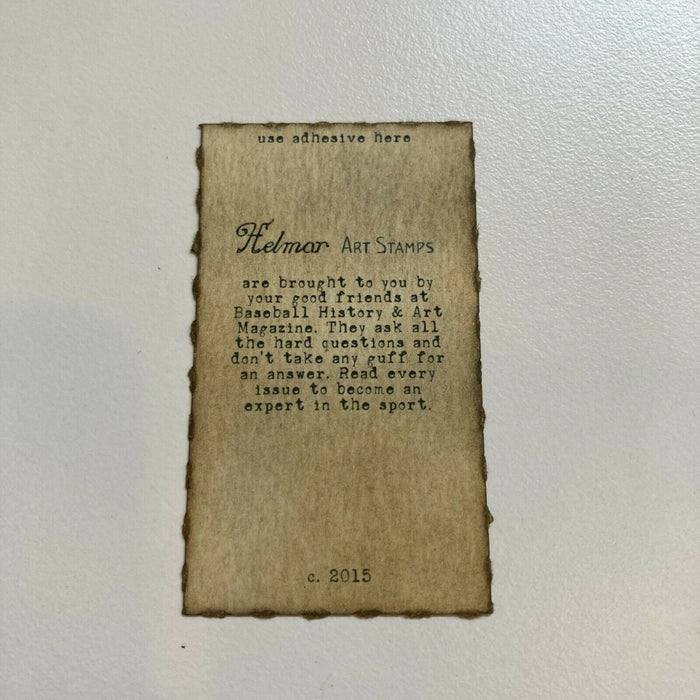 use adhesive here
Helmar ART STAMPS
are brought to you by
your good friends at
Baseball History & Art
Magazine. They ask all
the hard questions and
don't take any guff for
an answer. Read every
issue to become an
expert in the sport.
c. 2015